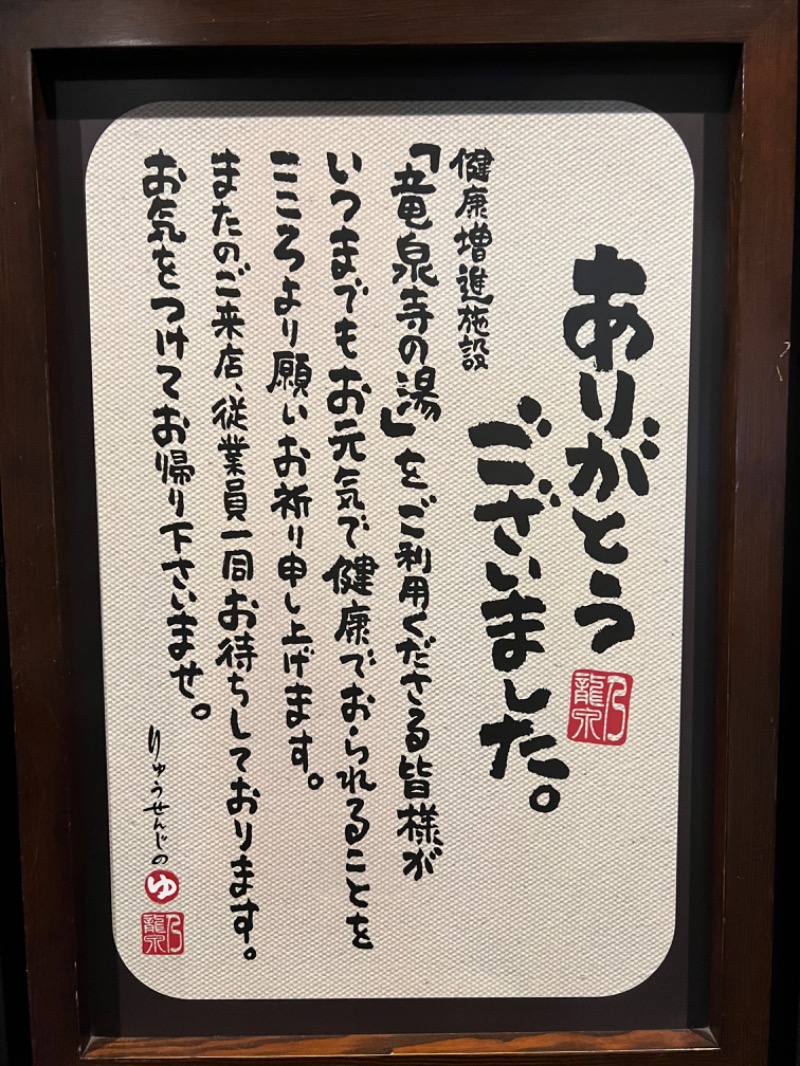 ありがとう
ございました。
健康増進施設
「竜泉寺の湯」をご利用くださる皆様が
いつまでもお元気で健康でおられることを
こころより願いお祈り申し上げます。
またのご来店、従業員一同お待ちしております。
お気をつけてお帰り下さいませ。
りゅうせんじの
ゆ